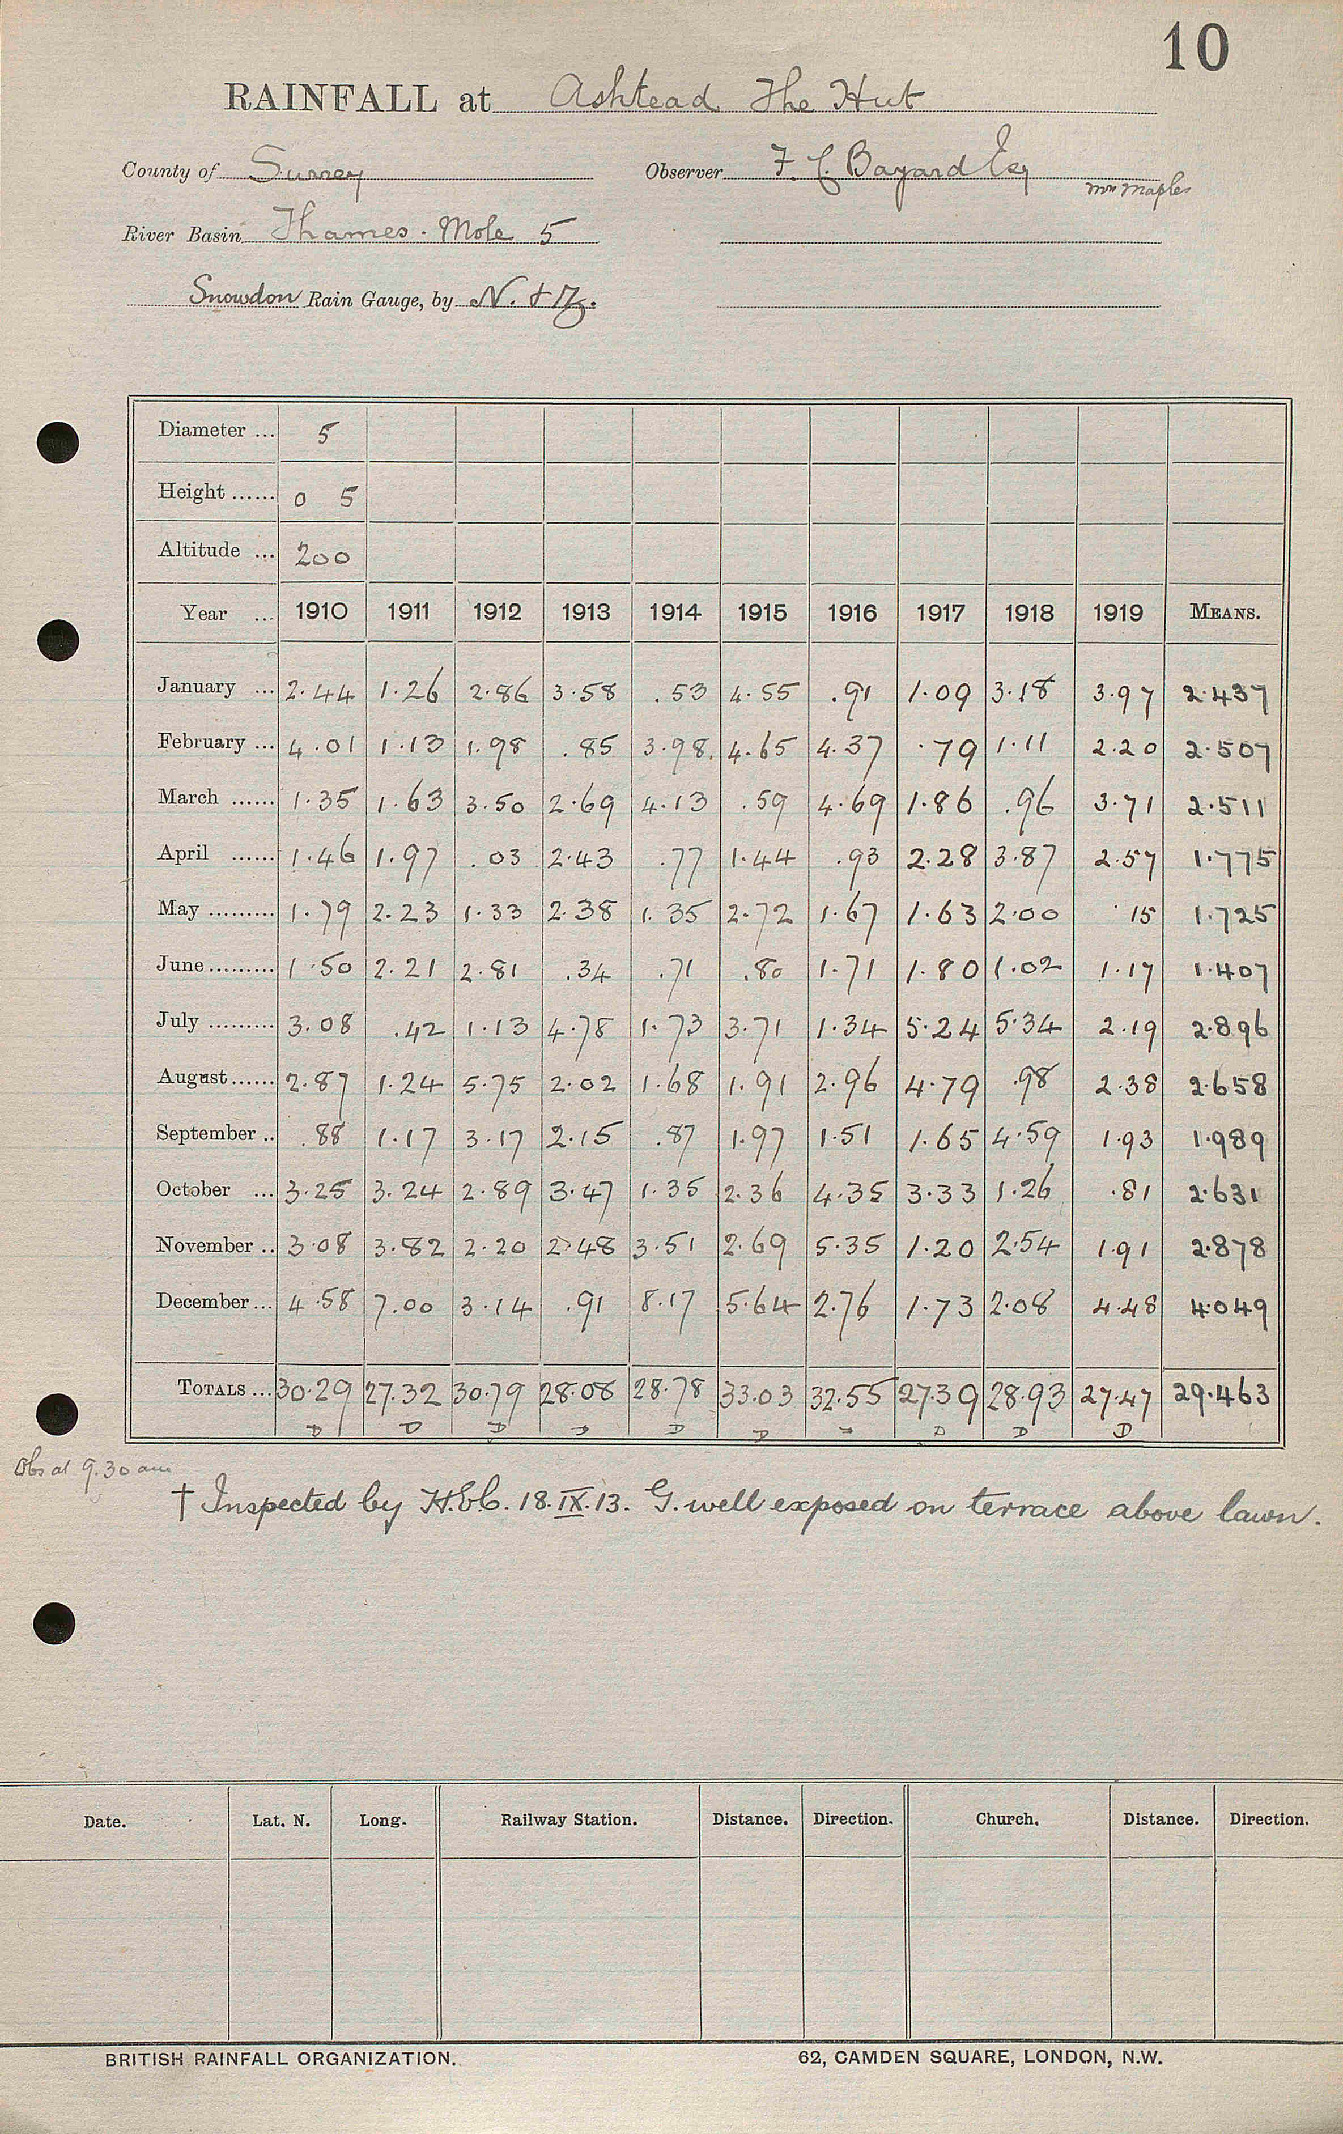 10
RAINFALL at Ashtead The Hut
County of Surrey Observer F. C. Bayard Esq
Mr Maples
River Basin Thames. Mole 5
Snowdon Rain Gauge, by N. & Z.
Diameter ... 5
Height ...... 0 5
Altitude ... 200
Year ... 1910 1911 1912 1913 1914 1915 1916 1917 1918 1919 MEANS.
January ... 2.44 1.26 2.86 3.58 .53 4.55 .91 1.09 3.18 3.97 2.437
February ... 4.01 1.13 1.98 .85 3.98 4.65 4.37 .79 1.11 2.20 2.507
March ...... 1.35 1.63 3.50 2.69 4.13 .59 4.69 1.86 .96 3.71 2.511
April ...... 1.46 1.97 .03 2.43 .77 1.44 .93 2.28 3.87 2.57 1.775
May ......... 1.79 2.23 1.33 2.38 1.35 2.72 1.67 1.63 2.00 .15 1.725
June ......... 1.50 2.21 2.81 .34 .71 .80 1.71 1.80 1.02 1.17 1.407
July ......... 3.08 .42 1.13 4.78 1.73 3.71 1.34 5.24 5.34 2.19 2.896
August ...... 2.87 1.24 5.75 2.02 1.68 1.91 2.96 4.79 .98 2.38 2.658
September .. .88 1.17 3.17 2.15 .87 1.97 1.51 1.65 4.59 1.93 1.989
October ... 3.25 3.24 2.89 3.47 1.35 2.36 4.35 3.33 1.26 .81 2.631
November .. 3.08 3.82 2.20 2.48 3.51 2.69 5.35 1.20 2.54 1.91 2.878
December ... 4.58 7.00 3.14 .91 8.17 5.64 2.76 1.73 2.08 4.48 4.049
TOTALS ... 30.29 27.32 30.79 28.08 28.78 33.03 32.55 27.39 28.93 27.47 29.463
D D D D D D D D D
Obs at 9.30 am
† Inspected by 18.IX.13. G. well exposed on terrace above lawn.
Date. Lat. N. Long. Railway Station. Distance. Direction. Church. Distance. Direction.
BRITISH RAINFALL ORGANIZATION. 62, CAMDEN SQUARE, LONDON, N.W.